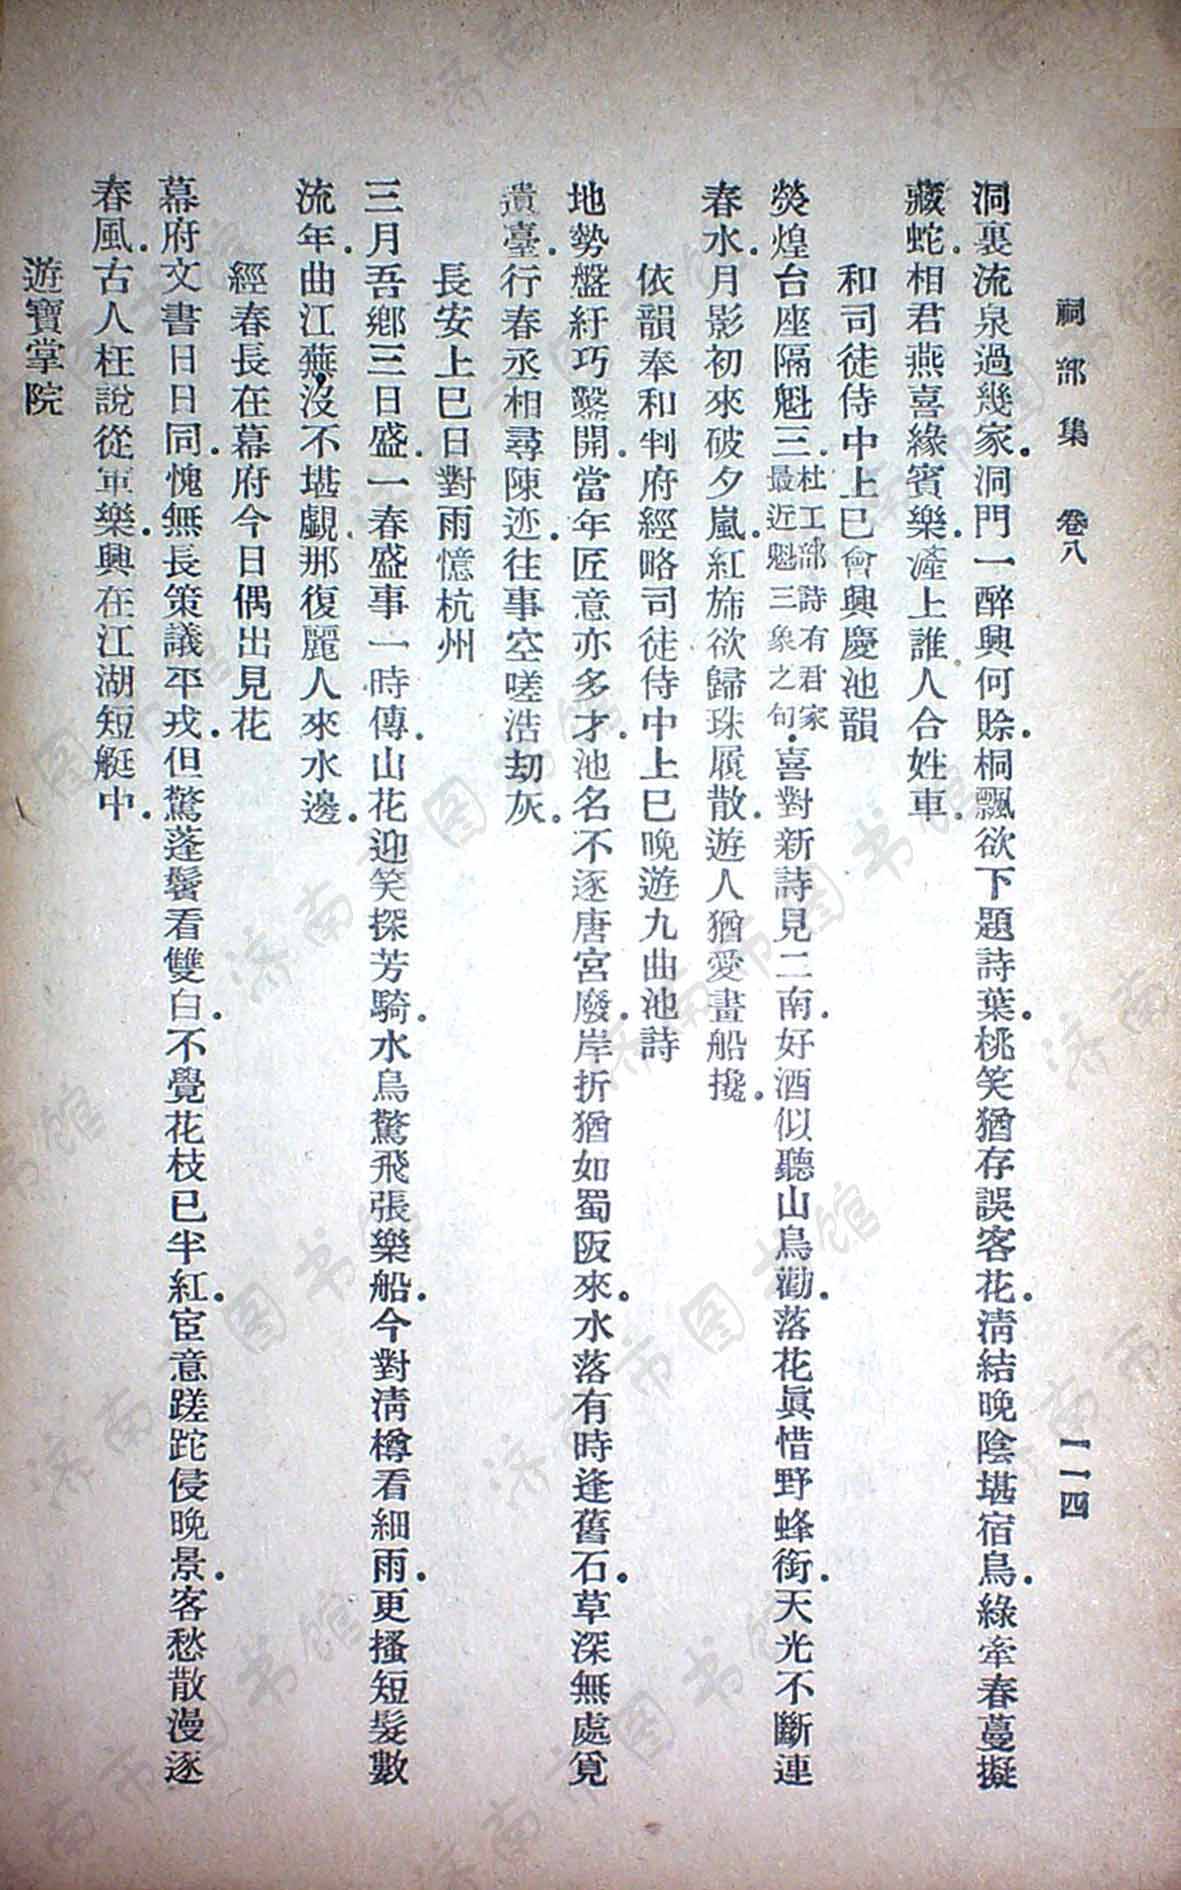 祠部集　卷八　一一四
洞裏流泉過幾家。洞門一醉興何賒。桐飄欲下題詩葉。桃笑猶存誤客花。淸結晚陰堪宿鳥。綠牽春蔓擬
藏蛇。相君燕喜緣賓樂。滻上誰人合姓車。
和司徒侍中上巳會興慶池韻
熒煌台座隔魁三。杜工部詩有君家最近魁三象之句。喜對新詩見二南。好酒似聽山鳥勸。落花眞惜野蜂銜。天光不斷連
春水。月影初來破夕嵐。紅旆欲歸珠履散。遊人猶愛畫船攙。
依韻奉和判府經略司徒侍中上巳晚遊九曲池詩
地勢盤紆巧鑿開。當年匠意亦多才。池名不逐唐宮廢。岸折猶如蜀阪來。水落有時逢舊石。草深無處覓
遺臺。行春丞相尋陳迹。往事空嗟浩劫灰。
長安上巳日對雨憶杭州
三月吾鄕三日盛。一春盛事一時傳。山花迎笑探芳騎。水鳥驚飛張樂船。今對淸樽看細雨。更搔短髮數
流年。曲江蕪沒不堪覷。那復麗人來水邊。
經春長在幕府今日偶出見花
幕府文書日日同。愧無長策議平戎。但驚蓬鬢看雙白。不覺花枝已半紅。宦意蹉跎侵晚景。客愁散漫逐
春風。古人枉說從軍樂。興在江湖短艇中。
遊寶掌院
济南市图书馆